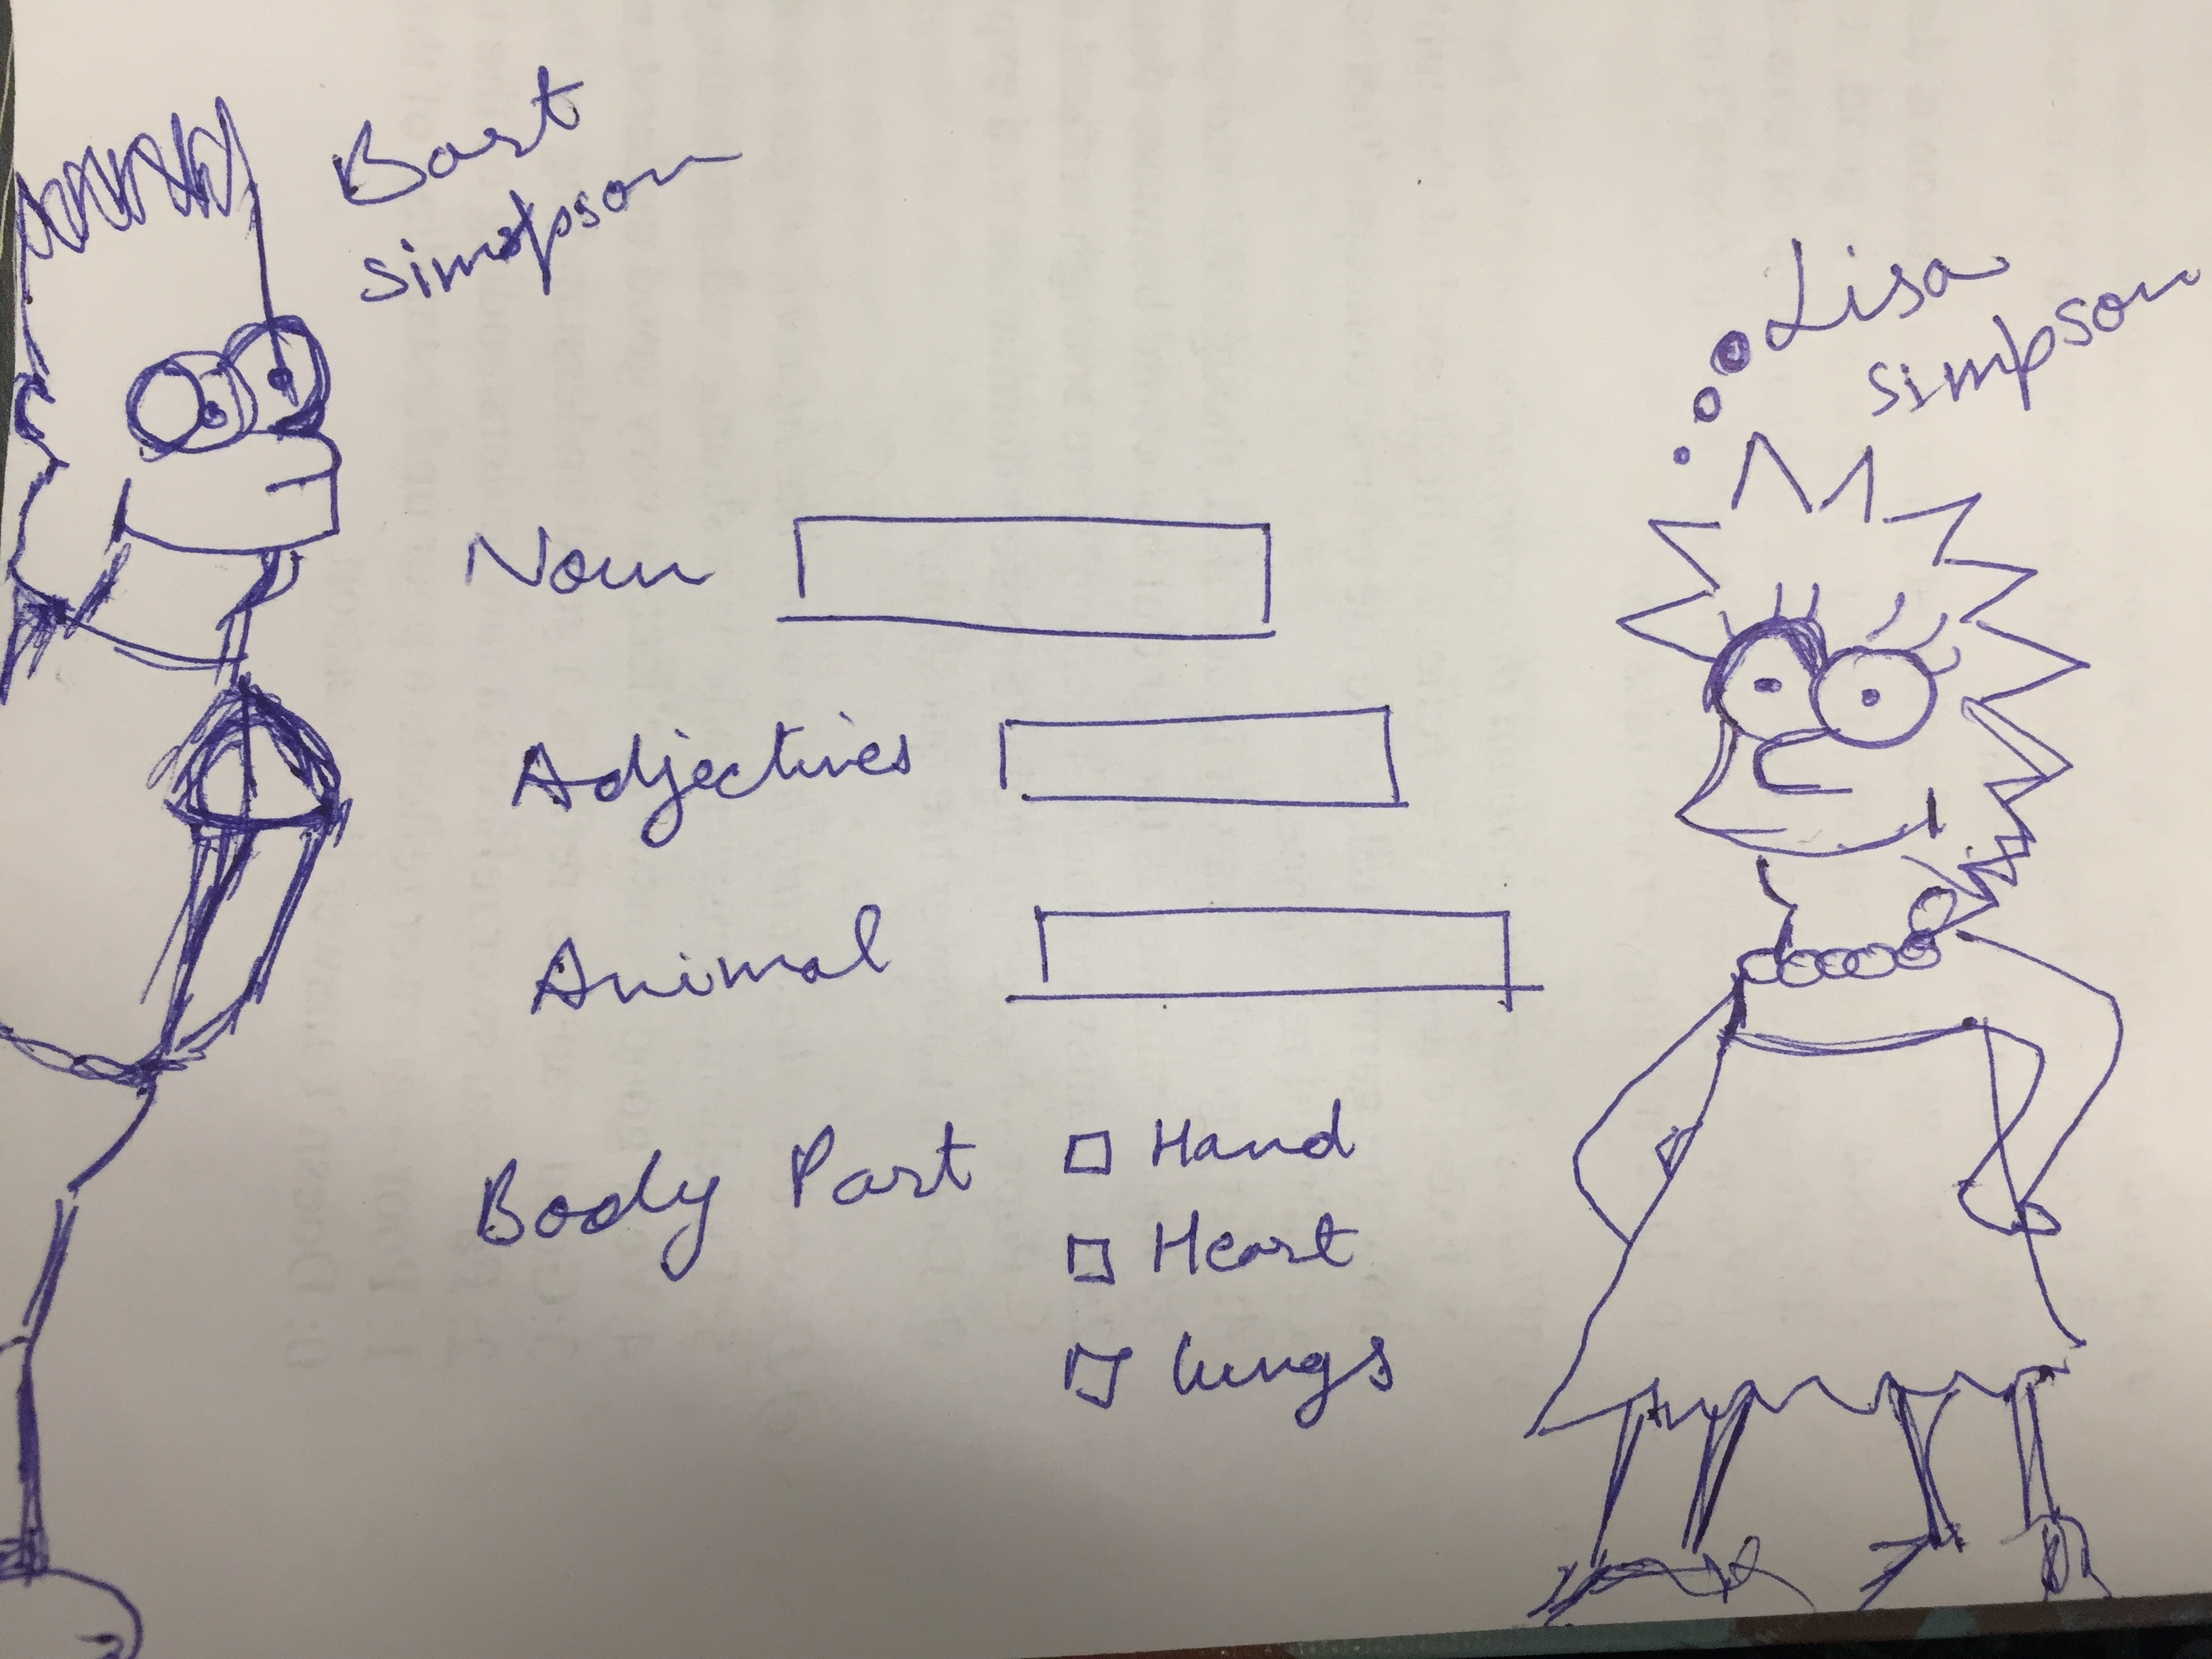 Bart
simpson
Lisa
simpson
Noun
Adjectives
Animal
Body Part
Hand
Heart
lungs